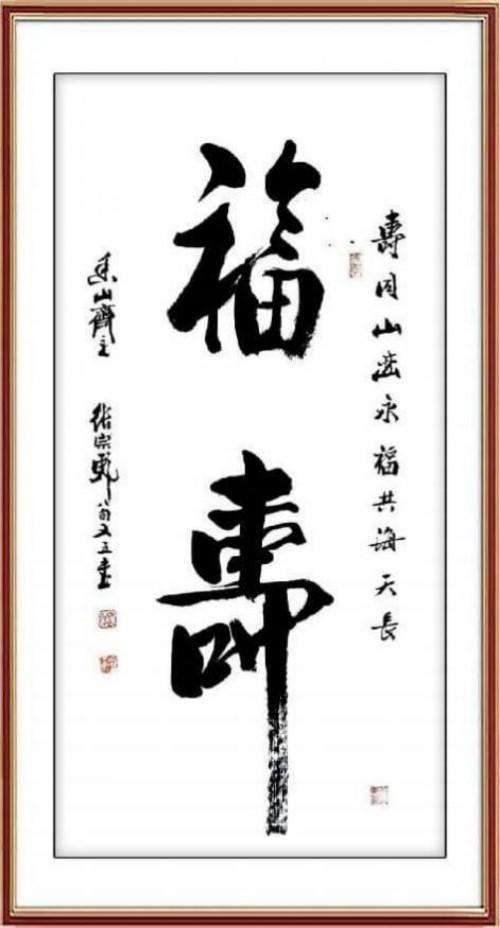 壽同山岳永福共海天長
福壽
山齋主
宗 又五書